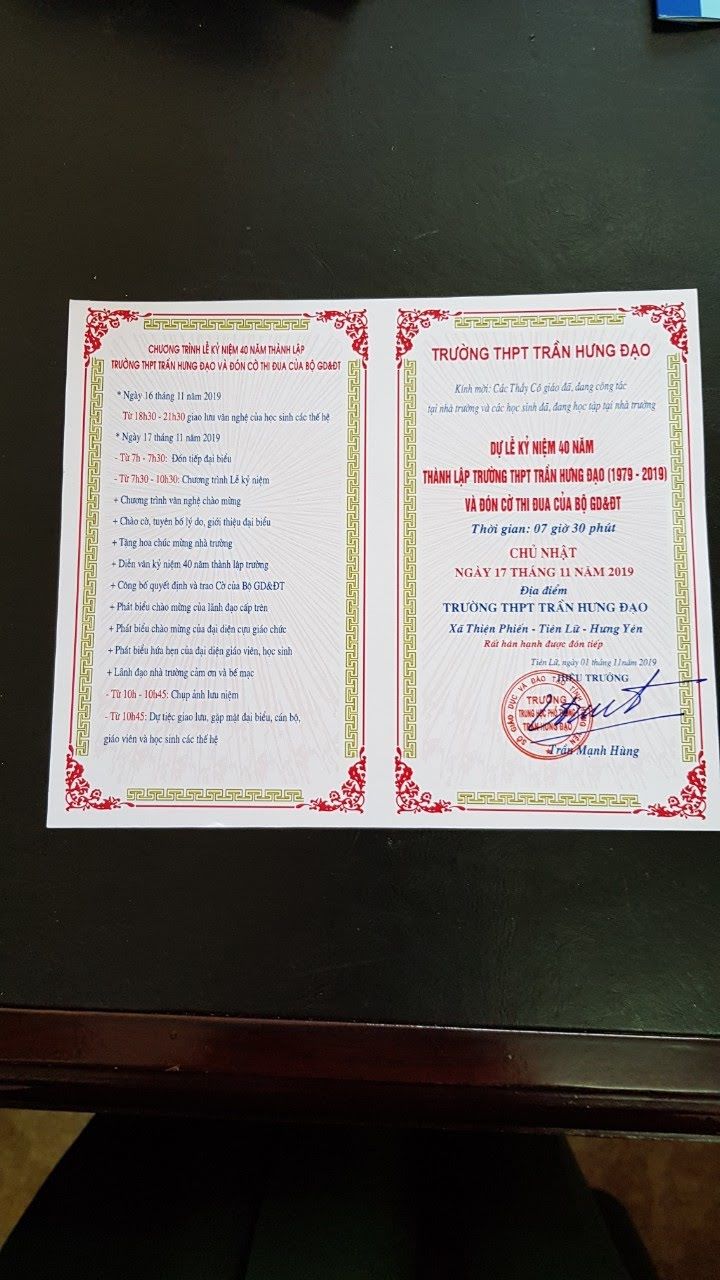 CHƯƠNG TRÌNH LỄ KỶ NIỆM 40 NĂM THÀNH LẬP
TRƯỜNG THPT TRẦN HƯNG ĐẠO VÀ ĐÓN CỜ THI ĐUA CỦA BỘ GD&ĐT
* Ngày 16 tháng 11 năm 2019
Từ 18h30 - 21h30 giao lưu văn nghệ của học sinh các thế hệ
* Ngày 17 tháng 11 năm 2019
- Từ 7h - 7h30: Đón tiếp đại biểu
- Từ 7h30 - 10h30: Chương trình Lễ kỷ niệm
+ Chương trình văn nghệ chào mừng
+ Chào cờ, tuyên bố lý do, giới thiệu đại biểu
+ Tặng hoa chúc mừng nhà trường
+ Diễn văn kỷ niệm 40 năm thành lập trường
+ Công bố quyết định và trao Cờ của Bộ GD&ĐT
+ Phát biểu chào mừng của lãnh đạo cấp trên
+ Phát biểu chào mừng của đại diện cựu giáo chức
+ Phát biểu hứa hẹn của đại diện giáo viên, học sinh
+ Lãnh đạo nhà trường cảm ơn và bế mạc
- Từ 10h - 10h45: Chụp ảnh lưu niệm
- Từ 10h45: Dự tiệc giao lưu, gặp mặt đại biểu, cán bộ,
giáo viên và học sinh các thế hệ
TRƯỜNG THPT TRẦN HƯNG ĐẠO
Kính mời: Các Thầy Cô giáo đã, đang công tác
tại nhà trường và các học sinh đã, đang học tập tại nhà trường
DỰ LỄ KỶ NIỆM 40 NĂM
THÀNH LẬP TRƯỜNG THPT TRẦN HƯNG ĐẠO (1979 - 2019)
VÀ ĐÓN CỜ THI ĐUA CỦA BỘ GD&ĐT
Thời gian: 07 giờ 30 phút
CHỦ NHẬT
NGÀY 17 THÁNG 11 NĂM 2019
Địa điểm
TRƯỜNG THPT TRẦN HƯNG ĐẠO
Xã Thiện Phiến - Tiên Lữ - Hưng Yên
Rất hân hạnh được đón tiếp
Tiên Lữ, ngày 01 tháng 11 năm 2019
HIỆU TRƯỞNG
SỞ GIÁO DỤC VÀ ĐÀO TẠO TỈNH HƯNG YÊN
TRƯỜNG
TRUNG HỌC PHỔ THÔNG
TRẦN HƯNG ĐẠO
Trần Mạnh Hùng